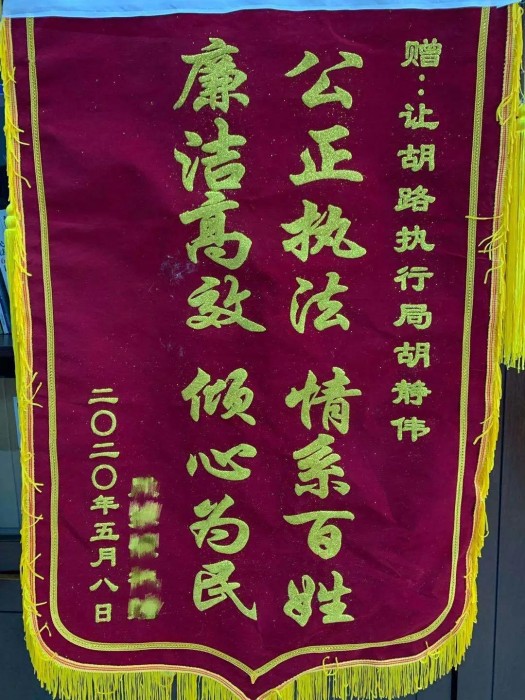 赠：让胡路执行局胡静伟
公正执法 情系百姓
廉洁高效 倾心为民
二〇二〇年五月八日